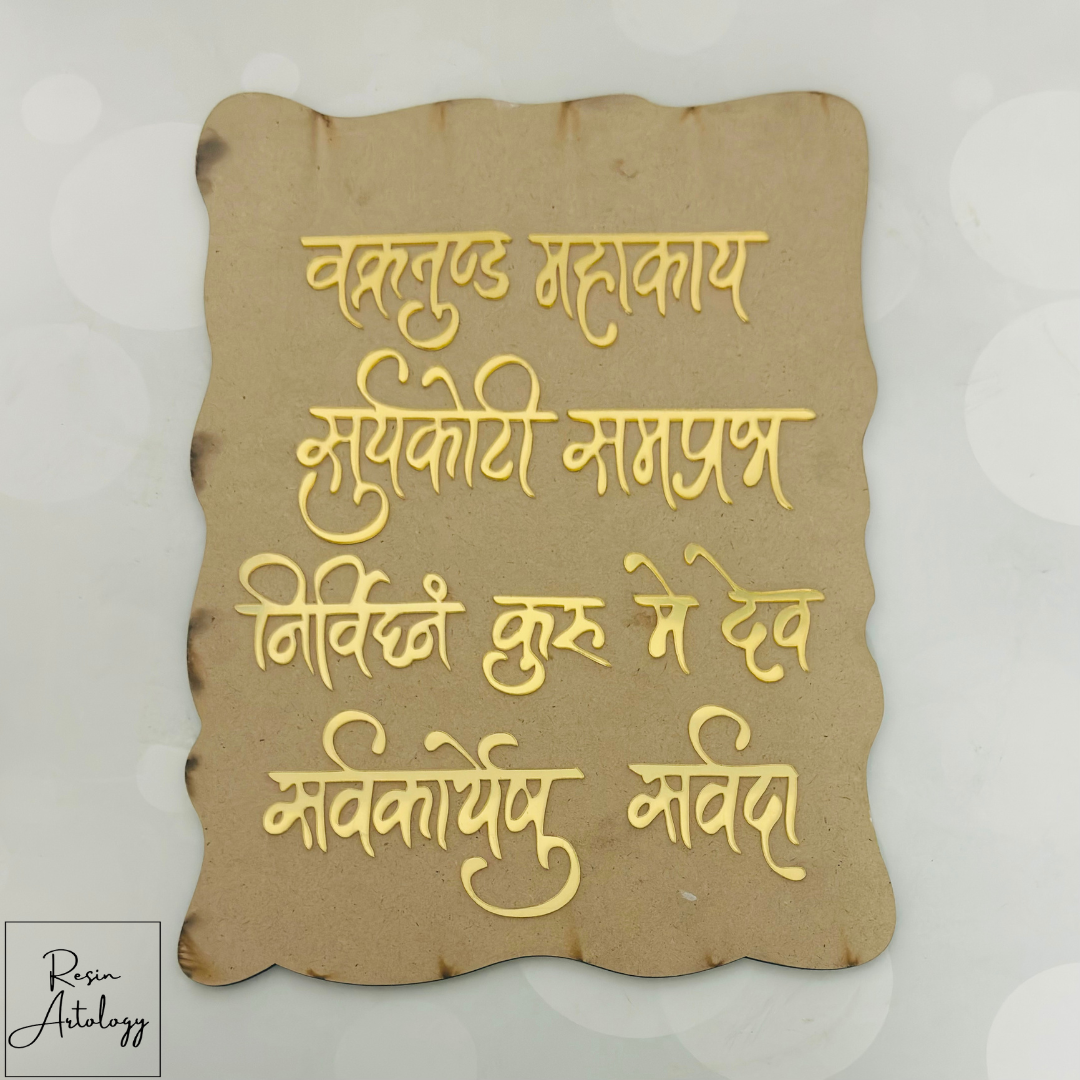 वक्रतुण्ड महाकाय
सुर्यकोटी समप्रभ
निर्विघ्नं कुरु मे देव
सर्वकार्येषु सर्वदा
Resin
Artology